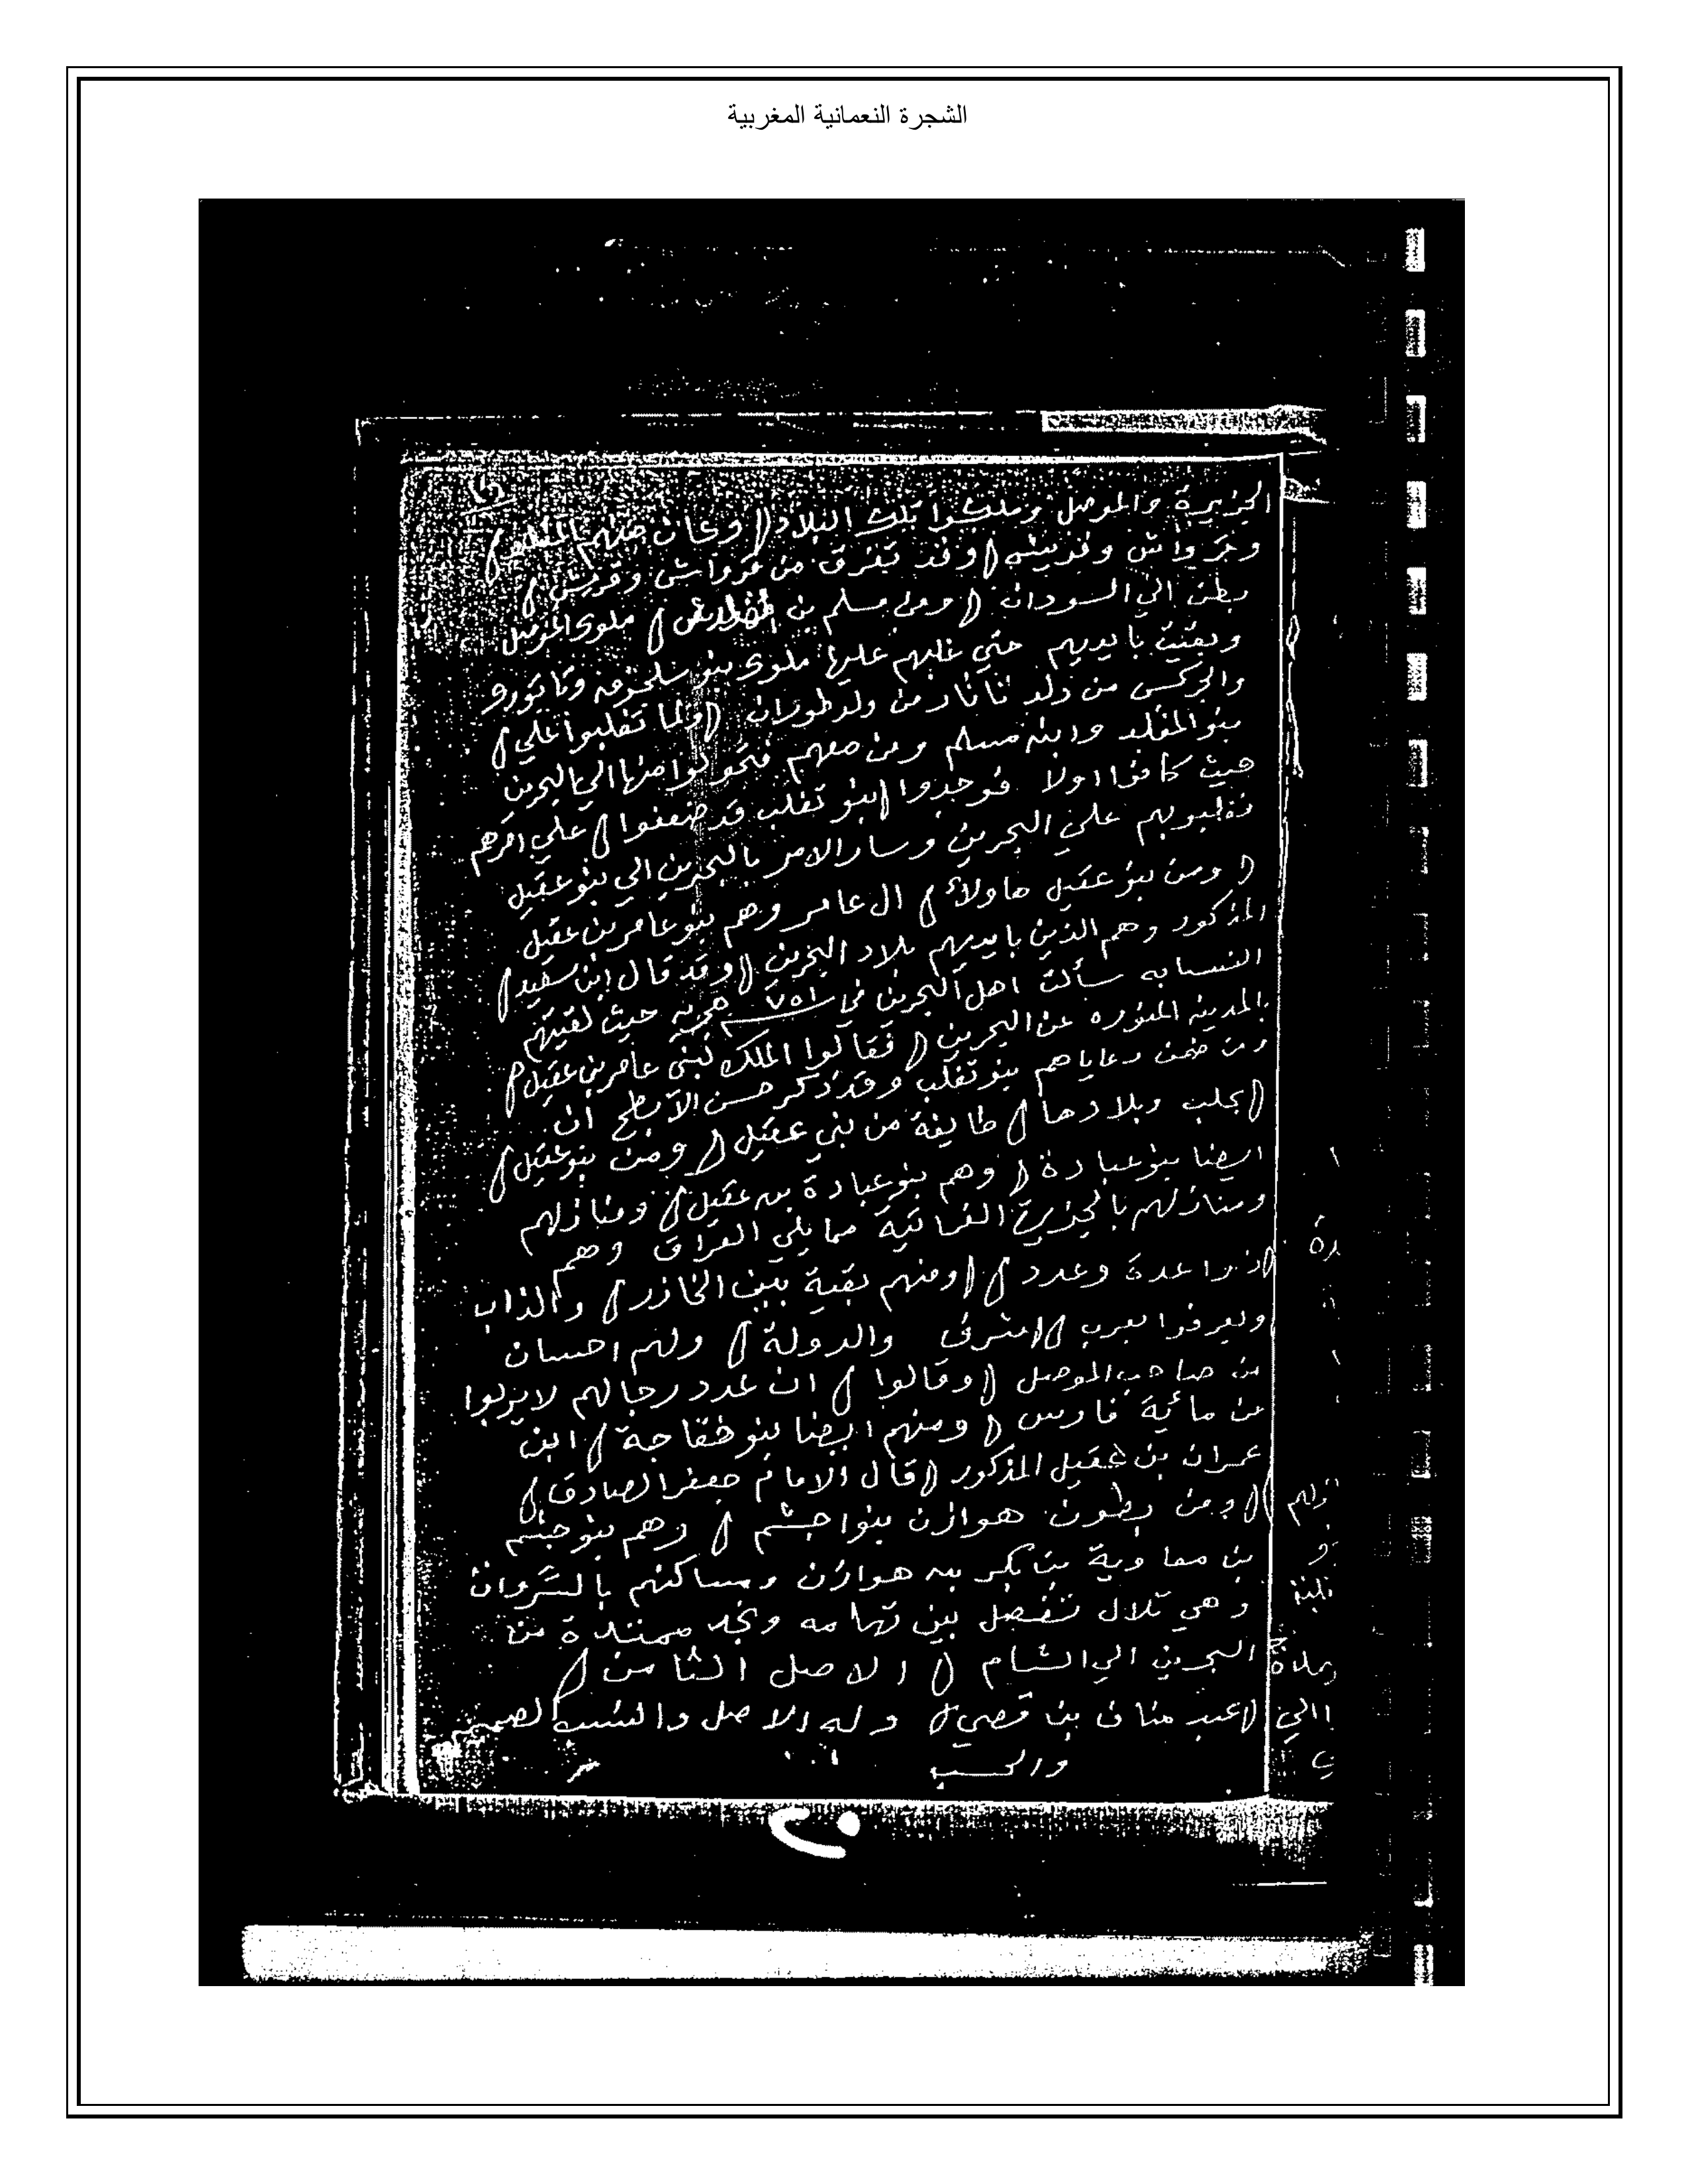 الشجرة النعمانية المغربية
الجزيرة والموصل وملكوا تلك البلاد ( وكان منهم المقلد )
وقد تفرق من قرواش وقريش )
بطن الي السودان ( ومن مسلم بن ) ملوك الموصل
وبقيت بايديهم حتي غلبهم عليها ملوك بنو
والجركس من ولد تاتار من ولد طوران ( ولما تغلبوا علي )
بنو المقلد وابنه مسلم ومن معهم فتحولوا منها الي البحرين
حيث كانوا اولا فوجدوا ( بنو تغلب قد ضعفوا ) علي امرهم
علي البحرين وسار الامر بالبحرين الي بنو عقيل
( ومن بنو عقيل هاولاء ) ال عامر وهم بنو عامر بن عقيل
المذكور وهم الذين بايديهم بلاد البحرين ( وقد قال ابن سعيد )
النسابه سألت اهل البحرين في ٧٥١ هجريه حيث لقيتهم
بالمدينه المنوره عن البحرين ( فقالوا الملك لبني عامر بن عقيل )
ومن ضمن رعاياهم بنو تغلب وقد ذكر حسن الابطح ان
( بحلب وبلادها ) طايفة من بني عقيل ( ومن بنو عقيل )
ايضا بنو عبادة ( وهم بنو عبادة بن عقيل ) ومنازلهم
ومنازلهم بالجزيرة الفراتية مما يلي العراق وهم
ذوا عدة وعدد ) ( ومنهم بقية بين الخازر ) والزاب
ويعرفوا بعرب ( شرف والدولة ) ولهم احسان
من صاحب الموصل ( وقالوا ) ان عدد رجالهم لايزلوا
من مائية فارس ( ومنهم ايضا بنو خفاجة ) ابن
عمران بن عقيل المذكور ( قال الامام جعفر الصادق )
( ومن بطون هوازن بنوا جشم ) وهم بنو جشم
بن معاوية بن بكر بن هوازن ومساكنهم بالسروان
وهي تلال تفصل بين تهامه ونجد ممتدة من
البحرين الي الشام ( الاصل الثامن )
( عبد مناف بن قصي ) وله الاصل والنسب الصميم
والحسب